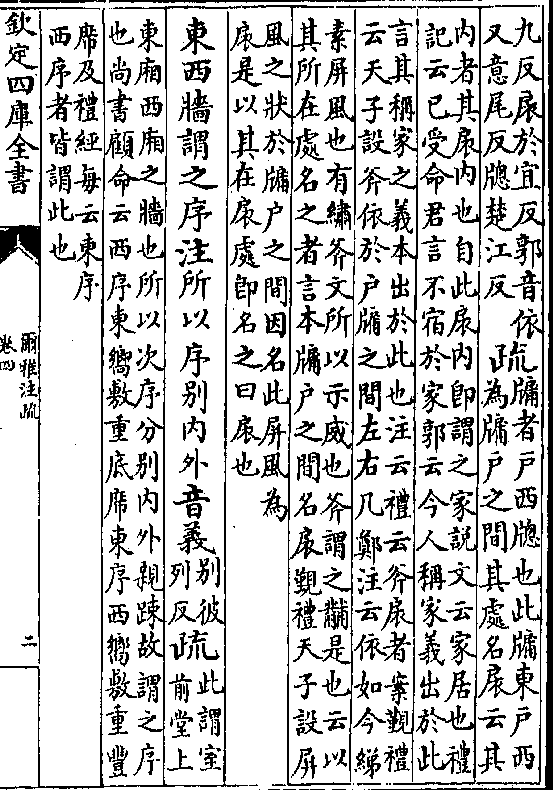 九反扆於宜反郭音依
又意尾反牎楚江反
疏
牖者戶西牎也此牖東戶西
為牖戶之間其處名扆云其
内者其扆内也自此扆内即謂之家說文云家居也禮
記云已受命君言不宿於家郭云今人稱家義出於此
言其稱家之義本出於此也注云禮云斧扆者案覲禮
云天子設斧依於戶牖之間左右几鄭注云依如今綈
素屏風也有繡斧文所以示威也斧謂之黼是也云以
其所在處名之者言本牖戶之間名扆覲禮天子設屏
風之狀於牖戶之間因名此屏風為
扆是以其在扆處即名之曰扆也
東西牆謂之序注所以序别内外音義
别彼
列反
疏
此謂室
前堂上
東廂西廂之牆也所以次序分别内外親踈故謂之序
也尚書顧命云西序東嚮敷重底席東序西嚮敷重豐
席及禮經每云東序
西序者皆謂此也
欽定四庫全書
爾雅注疏
卷四
二